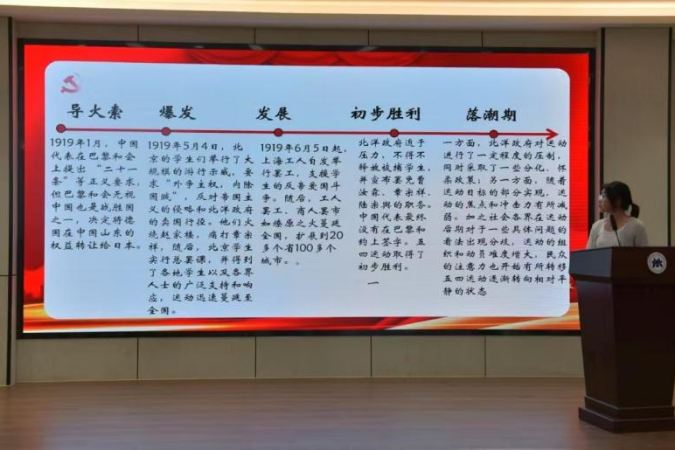 导火索
爆发
发展
初步胜利
落潮期
1919年1月，中国
代表在巴黎和会
上提出“二十一
条”等正义要求，
但巴黎和会无视
中国也是战胜国
之一，决定将德
国在中国山东的
权益转让给日本。
1919年5月4日，北
京的学生们举行了大
规模的游行示威，要
求“外争主权，内除
国贼”，反对帝国主
义的侵略和北洋政府
的卖国行径。他们火
烧赵家楼，痛打章宗
祥，随后，北京学生
实行总罢课，并得到
了各地学生以及各界
人士的广泛支持和响
应，运动迅速蔓延至
全国。
1919年6月5日起，
上海工人自发举
行罢工，支援学
生的反帝爱国斗
争。随后，工人
罢工、商人罢市
如燎原之火蔓延
全国，扩展到20
多个省100多个
城市。
北洋政府迫于
压力，不得不
释放被捕学生，
并宣布罢免曹
汝霖、章宗祥、
陆宗舆的职务。
中国代表最终
没有在巴黎和
约上签字。五
四运动取得了
初步胜利。
一
一方面，北洋政府对运动
进行了一定程度的压制，
同时采取了一些分化、怀
柔政策；另一方面，随着
运动目标的部分实现，运
动的焦点和冲击力有所减
弱。加之社会各界在运动
后期对于一些具体问题的
看法出现分歧，运动的组
织和动员难度增大，民众
的注意力也开始有所转移
五四运动逐渐转向相对平
静的状态